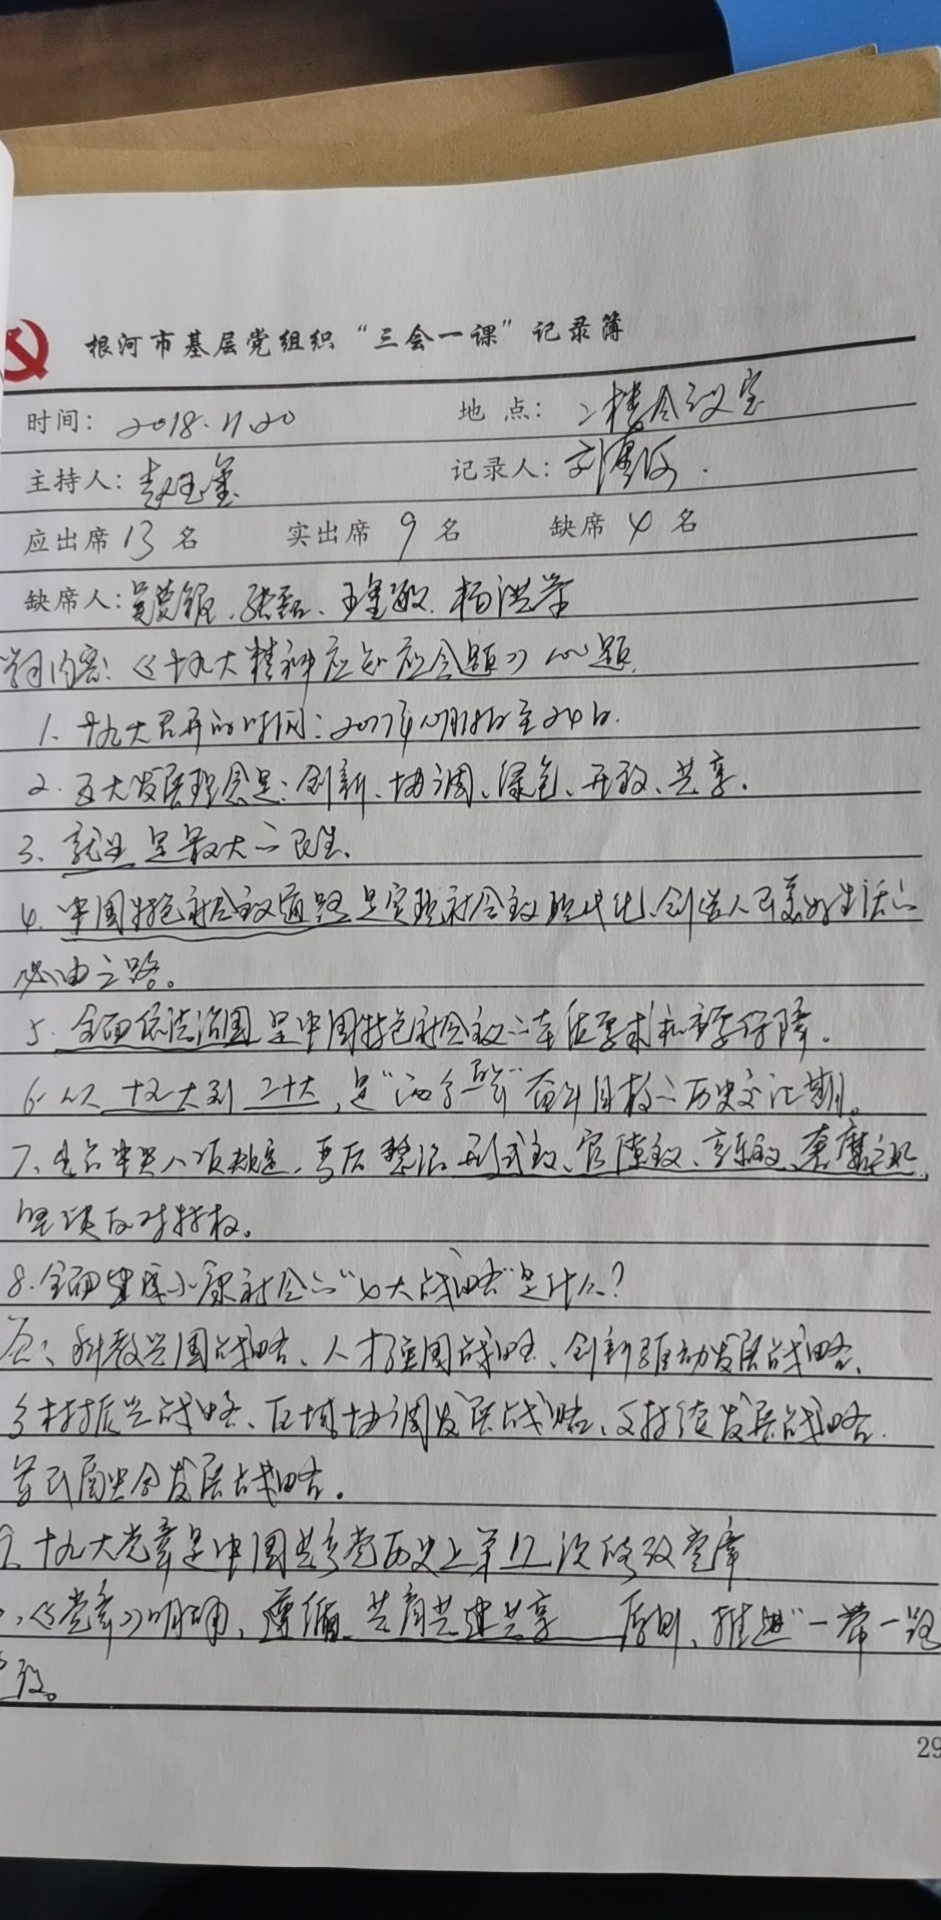 根河市基层党组织“三会一课”记录簿
时间：2018.11.20 地点：二楼会议室
主持人：赵玉玺 记录人：刘
应出席13名 实出席9名 缺席4名
缺席人：张磊、杨洪
学习内容：《十九大精神应知应会题》100题
1、十九大召开的时间：2017年10月18日至24日.
2.五大发展理念是：创新、协调、绿色、开放、共享.
3、就业是最大的民生.
4.中国特色社会主义道路是实现社会主义现代化、创造人民美好生活的
必由之路。
5.全面依法治国是中国特色社会主义的本质要求和重要保障.
6.从十九大到二十大,是“两个一百年”奋斗目标的历史交汇期。
7、中央八项规定,整治形式主义、官僚主义、享乐主义、奢靡之风,
坚决反对特权。
8.全面建成小康社会的“七大战略”是什么？
答：科教兴国战略、人才强国战略、创新驱动发展战略、
乡村振兴战略、区域协调发展战略、可持续发展战略.
军民融合发展战略.
9、十九大党章是中国共产党历史上第17次修改党章
、《党章》明确,遵循共商共建共享原则、推进“一带一路
设。
29